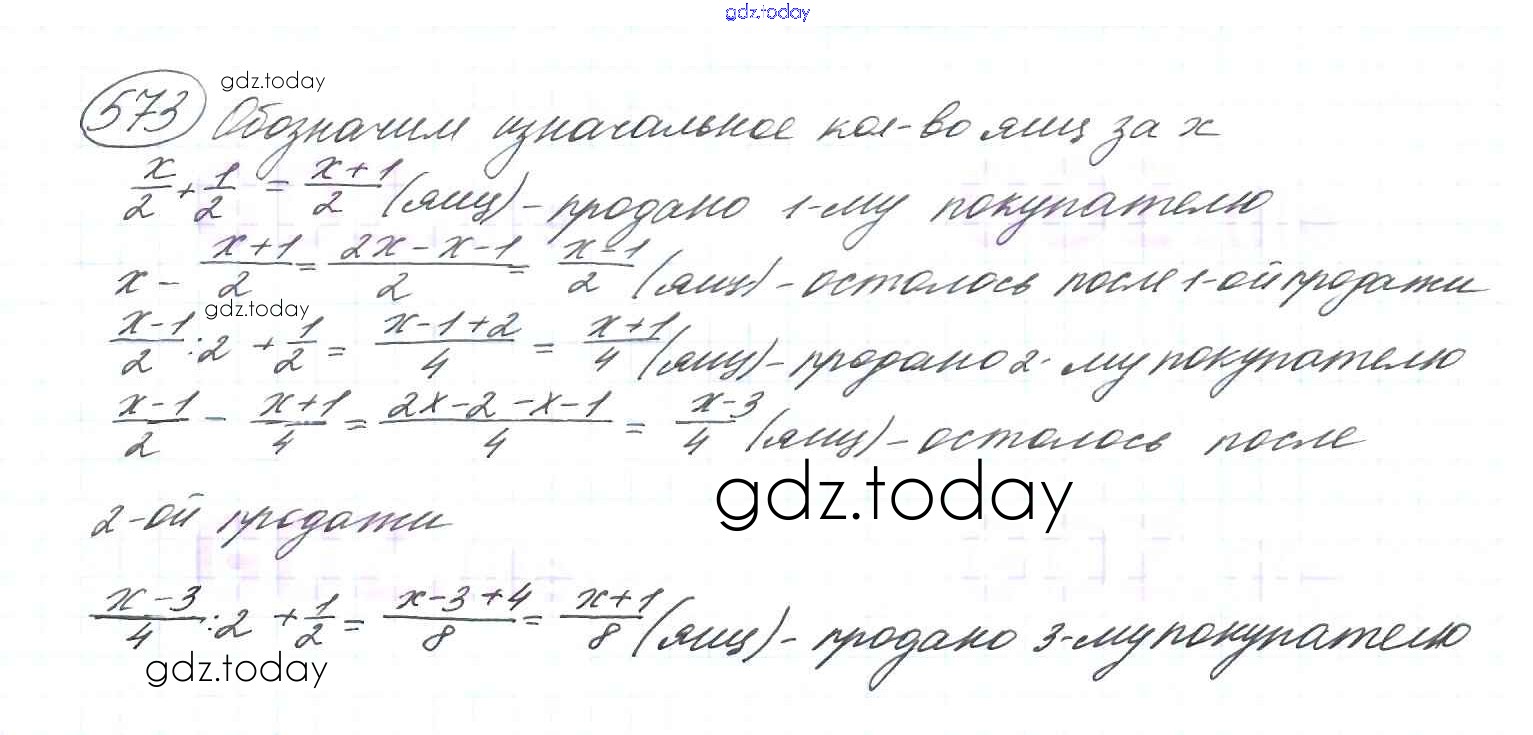 gdz.today
gdz.today
573 Обозначим изначальное кол-во яиц за x
x/2 + 1/2 = (x+1)/2 (яиц) - продано 1-му покупателю
x - (x+1)/2 = (2x-x-1)/2 = (x-1)/2 (яиц) - осталось после 1-ой продажи
gdz.today
(x-1)/2 :2 + 1/2 = (x-1+2)/4 = (x+1)/4 (яиц) - продано 2-му покупателю
(x-1)/2 - (x+1)/4 = (2x-2-x-1)/4 = (x-3)/4 (яиц) - осталось после
gdz.today
2-ой продажи
(x-3)/4 :2 + 1/2 = (x-3+4)/8 = (x+1)/8 (яиц) - продано 3-му покупателю
gdz.today